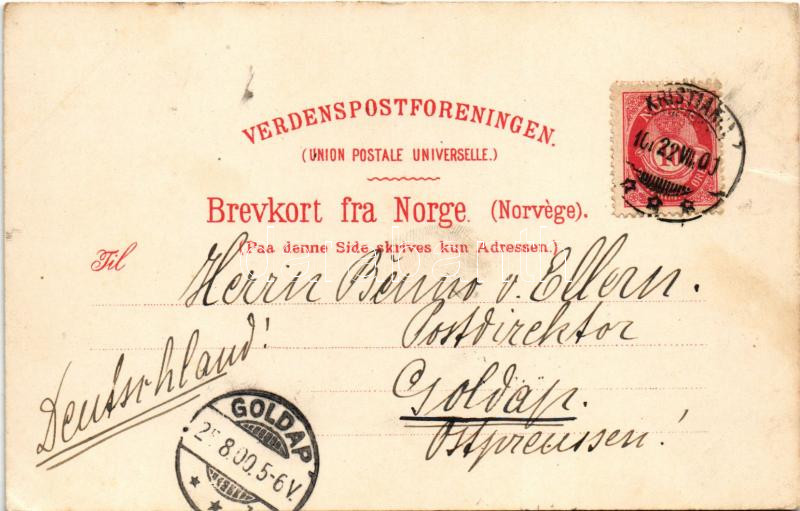 VERDENSPOSTFORENINGEN.
(UNION POSTALE UNIVERSELLE.)
Brevkort fra Norge. (Norvège).
(Paa denne Side skrives kun Adressen.)
Til
Herrn Benno v. Ellern.
Postdirektor
Goldap.
Ostpreussen!
Deutschland!
KRISTIANIA
22 VII 00
10
GOLDAP
8.00.5-6V.